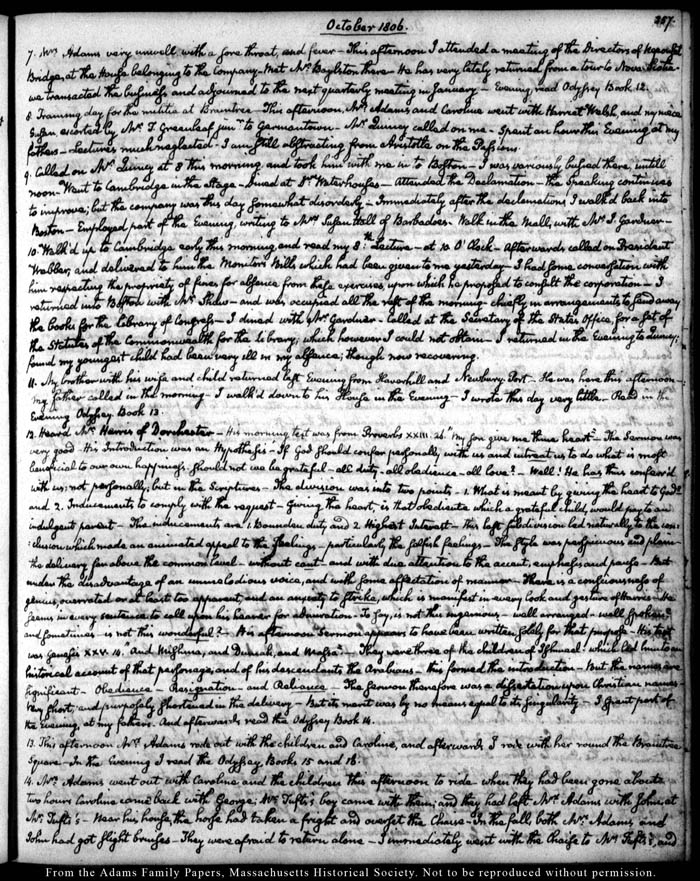 October 1806.
227.
7. Mrs. Adams very unwell, with a sore throat, and fever - This afternoon I attended a meeting of the Directors of Neponset
Bridge, at the House belonging to the Company. Met Mr. Boylston there - He has very lately returned from a tour to Nova Scotia
we transacted the business and adjourned to the next quarterly meeting in January - Evening, read Odyssey Book 12.
8. Training day for the militia at Braintree - This afternoon, Mrs. Adams and Caroline went with Harriet Welsh, and my niece
Susan, escorted by Mr. T. Greenleaf junr. to Germantown - Mr. Quincy called on me - Spent an hour this Evening at my
fathers - Lectures much neglected - I am still abstracting from Aristotle on the Passions.
9. Called on Mr. Quincy at 8 this morning and took him with me in to Boston - I was variously busied there, untill
noon - Went to Cambridge in the Stage - Dined at Dr. Waterhouse's - Attended the Declamation - the Speaking continues
to improve; but the company was this day somewhat disorderly - Immediately after the declamations I walk'd back into
Boston - Employed part of the Evening, writing to Mrs. Susan Hall of Barbadoes. Walk in the Mall, with Mr. J. Gardner -
10. Walk'd up to Cambridge early this morning, and read my 8th. Lecture - at 10. O'Clock - Afterwards called on President
Webber, and delivered to him the Monitor's Bills which had been given to me yesterday - I had some conversation with
him respecting the propriety of fines for absence from these exercises, upon which he proposed to consult the corporation - I
returned into Boston with Mr. Shaw - and was occupied all the rest of the morning chiefly in arrangements to send away
the books for the Library of Congress - I dined with Mr. Gardner - Called at the Secretary of the State's Office, for a set of
the Statutes of the Commonwealth for the library; which however I could not obtain - I returned in the Evening to Quincy;
found my youngest child had been very ill in my absence; though now recovering.
11. My brother with his wife and child returned last Evening from Haverhill and Newbury-Port - He was here this afternoon
my father called in the morning - I walk'd down to his House in the Evening - I wrote this day very little. Read in the
Evening Odyssey Book 13.
12. Heard Mr. Harris of Dorchester - His morning text was from Proverbs XXIII. 26. "My son give me thine heart" - The Sermon was
very good. His Introduction was an Hypothesis - If God should confer personally with us and intreat us to do what is most
beneficial to our own happiness, should not we be grateful - all duty - all obedience - all love? - Well! He has thus conferr'd
with us; not personally; but in the Scriptures - The division was into two points - 1. What is meant by giving the heart to God?
and 2. Inducements to comply with the request - Giving the heart, is that obedience which a grateful child, would pay to an
indulgent parent - The inducements are 1. Bounden duty, and 2 Highest Interest - this last subdivision led naturally to the con-
clusion which made an animated appeal to the feelings - particularly the selfish feelings - The style was perspicuous and plain -
the delivery far above the common level - without cant - and with due attention to the accent, emphasis and pause - But
under the disadvantage of an unmelodious voice, and with some affectation of manner - There is a consciousness of
genius, overrated or at least too apparent, and an anxiety to strike, which is manifest in every look and gesture of Harris - He
seems in every sentence to call upon his hearer for admiration - To say, is not this ingenious - well arranged - well spoken?
and sometimes - is not this wonderful? - His afternoon Sermon appears to have been written solely for that purpose - His text
was Genesis XXV. 14. And Mishma, and Dumah, and Massa - They were three of the children of Ishmael: which led him to an
historical account of that personage, and of his descendants the Arabians - this formed the introduction - But the names are
significant - Obedience - Resignation - and Reliance - The sermon therefore was a dissertation upon Christian names -
Very short, and purposely shortened in the delivery - But its merit was by no means equal to its singularity - I spent part of
the Evening, at my fathers. And afterwards read the Odyssey Book 14.
13. This afternoon Mrs. Adams rode out with the children and Caroline, and afterwards I rode with her round the Braintree
Square - In the Evening I read the Odyssey, Books 15 and 16.
14. Mrs. Adams went out with Caroline and the children this afternoon to ride - when they had been gone about
two hours Caroline came back with George; Mr. Tufts's boy came with them; and they had left Mrs. Adams with John, at
Mr. Tufts's - Near his house, the horse had taken a fright and overset the Chaise - In the fall, both Mrs. Adams and
John had got slight bruises - They were afraid to return alone - I immediately went with the Chaise to Mr. Tufts's, and
From the Adams Family Papers, Massachusetts Historical Society. Not to be reproduced without permission.